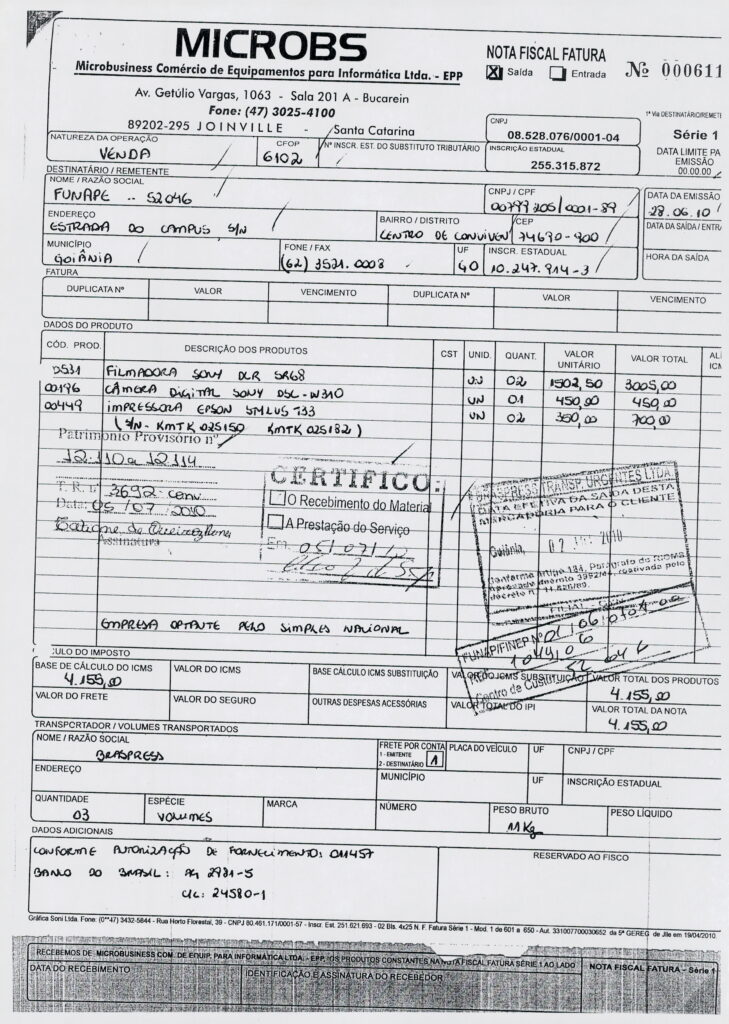 MICROBS
Microbusiness Comércio de Equipamentos para Informática Ltda. - EPP
Av. Getúlio Vargas, 1063 - Sala 201 A - Bucarein
Fone: (47) 3025-4100
89202-295 JOINVILLE - Santa Catarina
NOTA FISCAL FATURA
X Saída Entrada
Nº 000611
1ª Via DESTINATÁRIO/REMETE
CNPJ
08.528.076/0001-04
Série 1
INSCRIÇÃO ESTADUAL
255.315.872
DATA LIMITE PA
EMISSÃO
00.00.00
NATUREZA DA OPERAÇÃO
VENDA
CFOP
6102
Nº INSCR. EST. DO SUBSTITUTO TRIBUTÁRIO
DESTINATÁRIO / REMETENTE
NOME / RAZÃO SOCIAL
FUNAPE -- 52046
CNPJ / CPF
00799205/0001-89
DATA DA EMISSÃO
28.06.10
ENDEREÇO
ESTRADA DO CAMPUS S/N
BAIRRO / DISTRITO
CENTRO DE CONVIVEN
CEP
74690-900
DATA DA SAÍDA / ENTRA
MUNICÍPIO
GOIÂNIA
FONE / FAX
(62) 3521.0008
UF
GO
INSCR. ESTADUAL
10.247.914-3
HORA DA SAÍDA
FATURA
DUPLICATA Nº VALOR VENCIMENTO DUPLICATA Nº VALOR VENCIMENTO
DADOS DO PRODUTO
CÓD. PROD. DESCRIÇÃO DOS PRODUTOS CST UNID. QUANT. VALOR UNITÁRIO VALOR TOTAL ALI ICM
D531 FILMADORA SONY DCR SR68 UN 02 1502,50 3005,00
00196 CÂMERA DIGITAL SONY DSC-W310 UN 01 450,00 450,00
00449 IMPRESSORA EPSON STYLUS T33 UN 02 350,00 700,00
(S/N- KMTK 025150 KMTK 025182)
Patrimonio Provisório nº
12.110 a 12.114
T. R. 3692-conv
Data: 05/07/2010
Assinatura
CERTIFICO:
O Recebimento do Material
A Prestação do Serviço
Em 05/07/10
BRASPRESS TRANSP. URGENTES LTDA.
DATA EFETIVA DA SAÍDA DESTA
MERCADORIA PARA O CLIENTE
Goiânia, 02 2010
FUNAPE/FINEP Nº 01.06.0707.00
104406
52 046
Centro de Custo
EMPRESA OPTANTE PELO SIMPLES NACIONAL
CULO DO IMPOSTO
BASE DE CÁLCULO DO ICMS
4.155,00
VALOR DO ICMS
BASE CÁLCULO ICMS SUBSTITUIÇÃO
VALOR DO ICMS SUBSTITUIÇÃO
VALOR TOTAL DOS PRODUTOS
4.155,00
VALOR DO FRETE
VALOR DO SEGURO
OUTRAS DESPESAS ACESSÓRIAS
VALOR TOTAL DO IPI
VALOR TOTAL DA NOTA
4.155,00
TRANSPORTADOR / VOLUMES TRANSPORTADOS
NOME / RAZÃO SOCIAL
BRASPRESS
FRETE POR CONTA
1 - EMITENTE
2 - DESTINATÁRIO 1
PLACA DO VEÍCULO
UF
CNPJ / CPF
ENDEREÇO
MUNICÍPIO
UF
INSCRIÇÃO ESTADUAL
QUANTIDADE
03
ESPÉCIE
VOLUMES
MARCA
NÚMERO
PESO BRUTO
11 Kg
PESO LÍQUIDO
DADOS ADICIONAIS
CONFORME AUTORIZAÇÃO DE FORNECIMENTO: 011457
BANCO DO BRASIL: AG 2981-5
C/C: 24580-1
RESERVADO AO FISCO
Gráfica Soni Ltda. Fone: (0**47) 3432-5844 - Rua Horto Florestal, 39 - CNPJ 80.461.171/0001-57 - Inscr. Est. 251.621.693 - 02 Bls. 4x25 N. F. Fatura Série 1 - Mod. 1 de 601 a 650 - Aut. 331007700030652 da 5ª GEREG de Jlle em 19/04/2010.
RECEBEMOS DE MICROBUSINESS COM. DE EQUIP. PARA INFORMÁTICA LTDA. - EPP, OS PRODUTOS CONSTANTES NA NOTA FISCAL FATURA SÉRIE 1 AO LADO
NOTA FISCAL FATURA - Série 1
DATA DO RECEBIMENTO
IDENTIFICAÇÃO E ASSINATURA DO RECEBEDOR